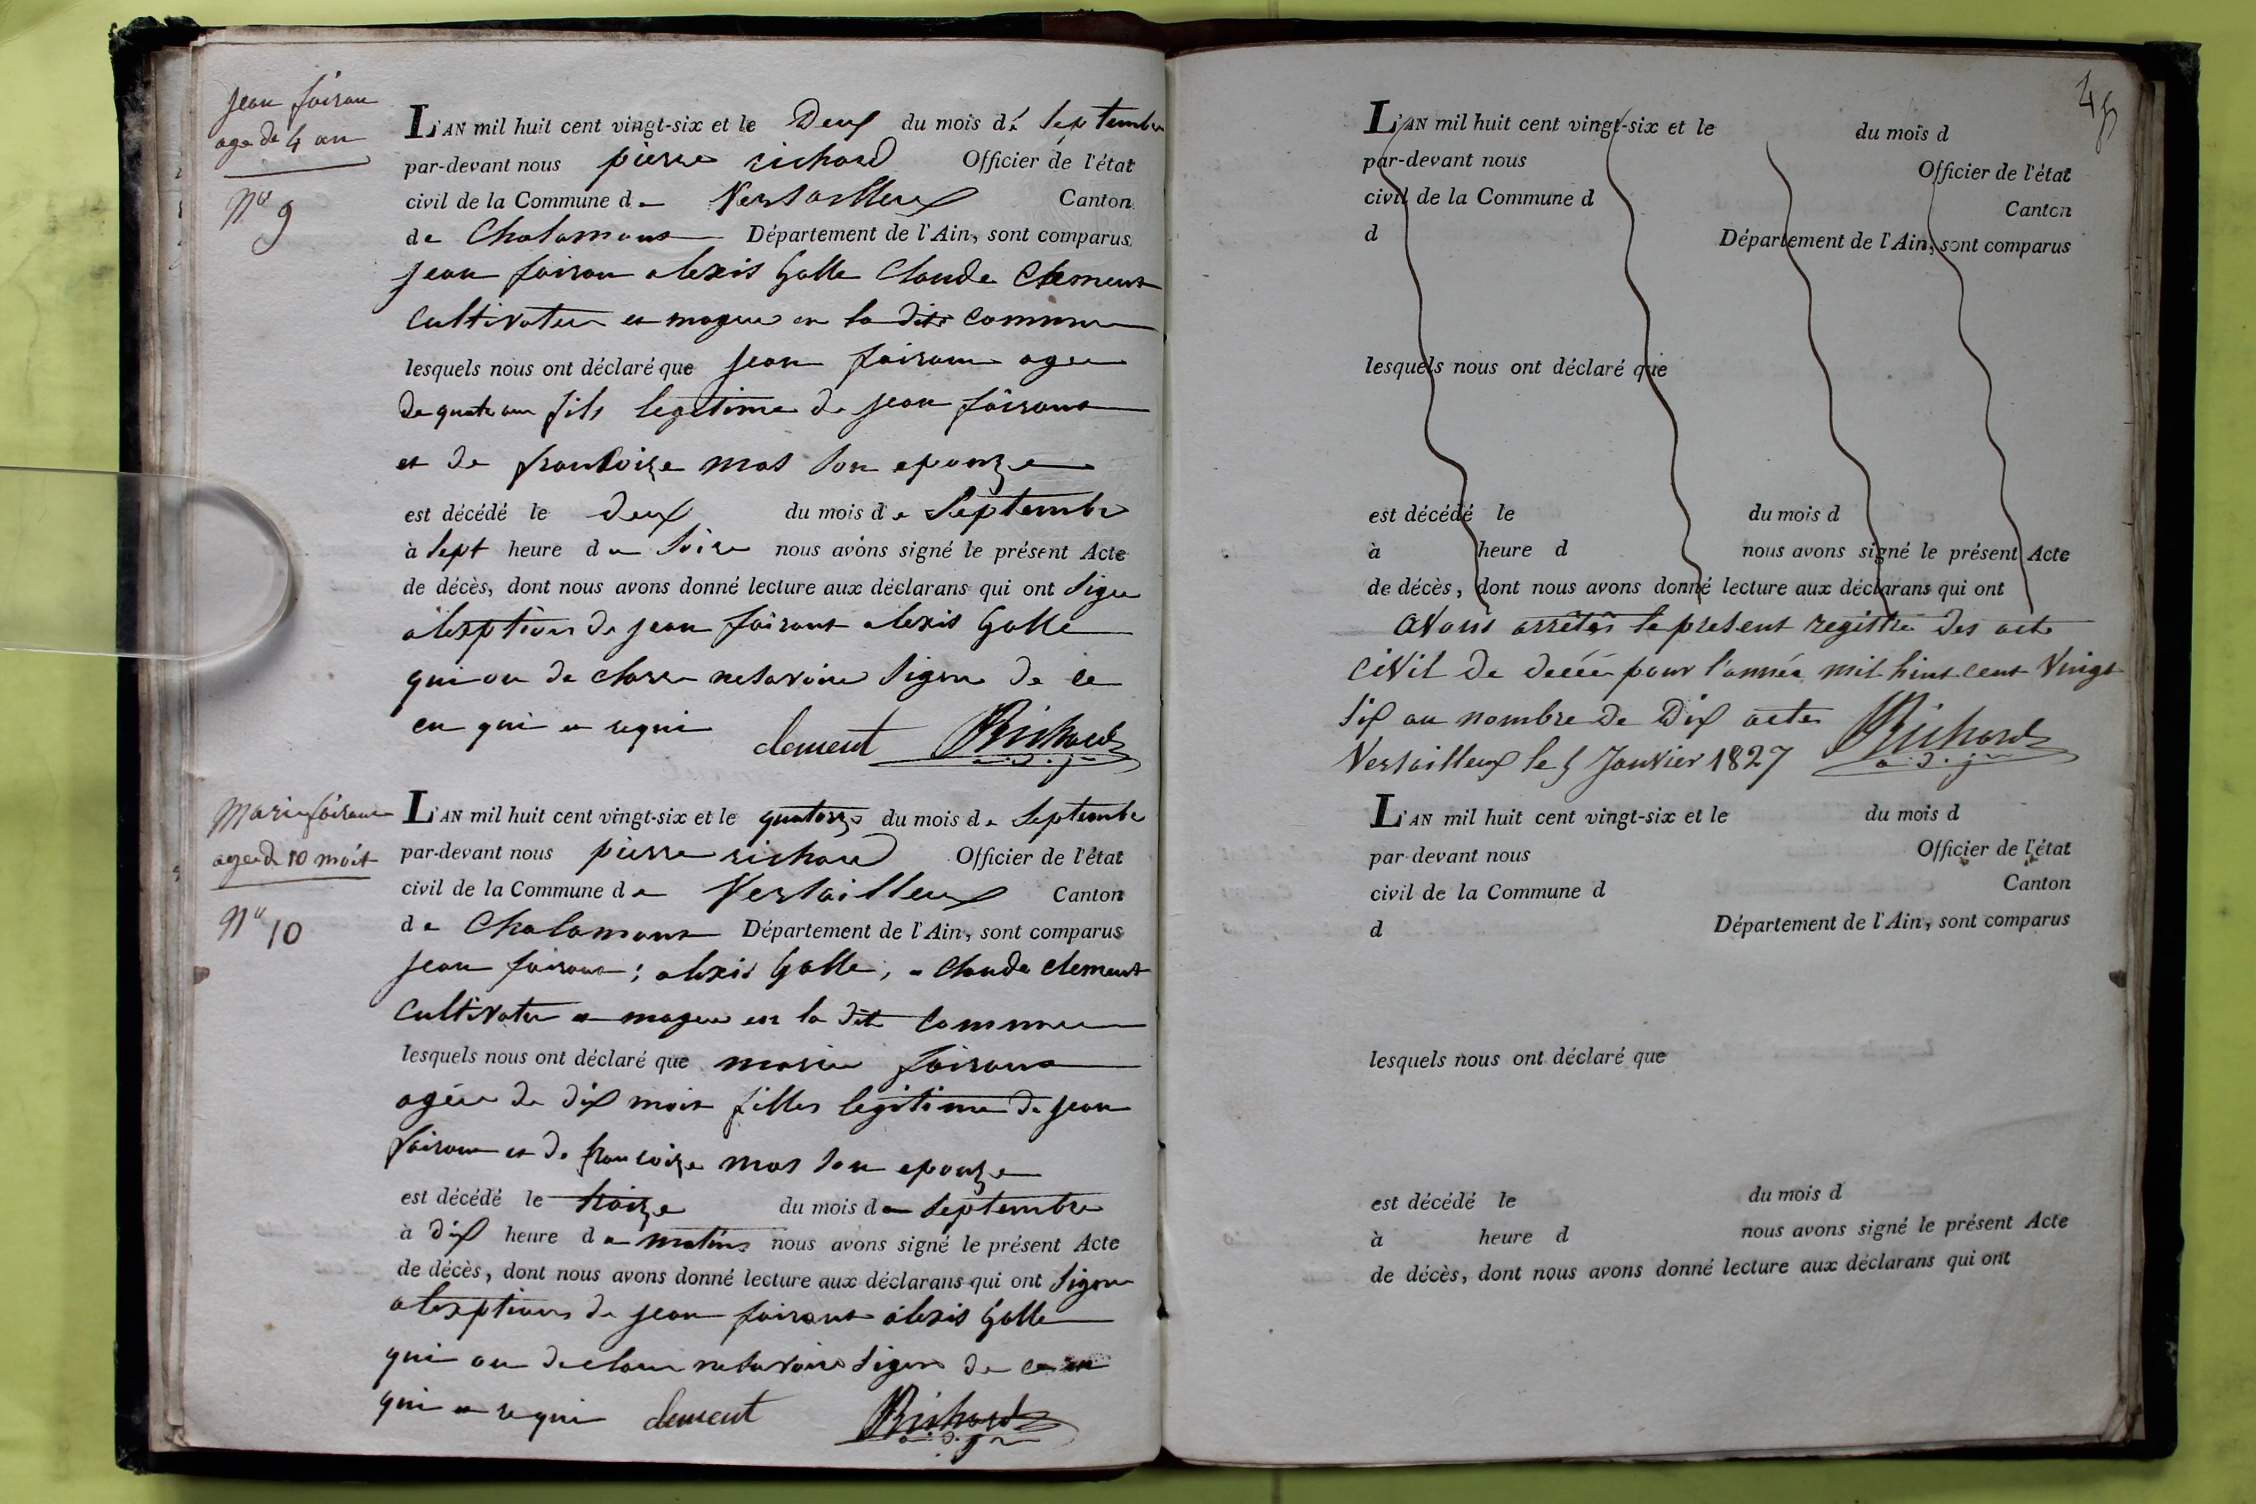 jean foiran
age de 4 an
No 9
L'AN mil huit cent vingt-six et le Deux du mois de Septembre
par-devant nous pierre richard Officier de l'état
civil de la Commune de Versailleux Canton
de Chalamont Département de l'Ain, sont comparus
jean foiran alexis Galle Claude Clement
Cultivateur et mageur en la dite commune
lesquels nous ont déclaré que jean foiran agee
de quatr an fils legitime de jean foirant
et de francoize mas son epouze
est décédé le deux du mois de Septembre
à sept heure du soire nous avons signé le présent Acte
de décès, dont nous avons donné lecture aux déclarans qui ont signe
alexption de jean foirant alexis Galle
qui on de clare ne savoire signe de ce
en qui e requi clement PRichard
a.d.j
Marie foiran
agee de 10 moit
No 10
L'AN mil huit cent vingt-six et le quatorze du mois de Septembre
par-devant nous pierre richard Officier de l'état
civil de la Commune de Versailleux Canton
de Chalamont Département de l'Ain, sont comparus
jean foirant; alexis Galle; e Claude clement
Cultivateur e mageur en la dite commune
lesquels nous ont déclaré que marie foirant
agée de dix mois filles legitime de jean
foiran et de francoize mas son epouze
est décédé le traize du mois de Septembre
à dix heure du matins nous avons signé le présent Acte
de décès, dont nous avons donné lecture aux déclarans qui ont signe
alexption de jean foirant alexis Galle
qui on declare ne savoire signe de ce en
qui e requi clement PRichard
a.d.j
L'AN mil huit cent vingt-six et le du mois d
par-devant nous Officier de l'état
civil de la Commune d Canton
d Département de l'Ain, sont comparus
lesquels nous ont déclaré que
est décédé le du mois d
à heure d nous avons signé le présent Acte
de décès, dont nous avons donné lecture aux déclarans qui ont
avons arrêtés le present registre des acte
civil de décée pour l'année mil huit cent vingt
six au nombre de Dix actes
Versailleux le 5 Janvier 1827 PRichard
a.d.j
L'AN mil huit cent vingt-six et le du mois d
par devant nous Officier de l'état
civil de la Commune d Canton
d Département de l'Ain, sont comparus
lesquels nous ont déclaré que
est décédé le du mois d
à heure d nous avons signé le présent Acte
de décès, dont nous avons donné lecture aux déclarans qui ont